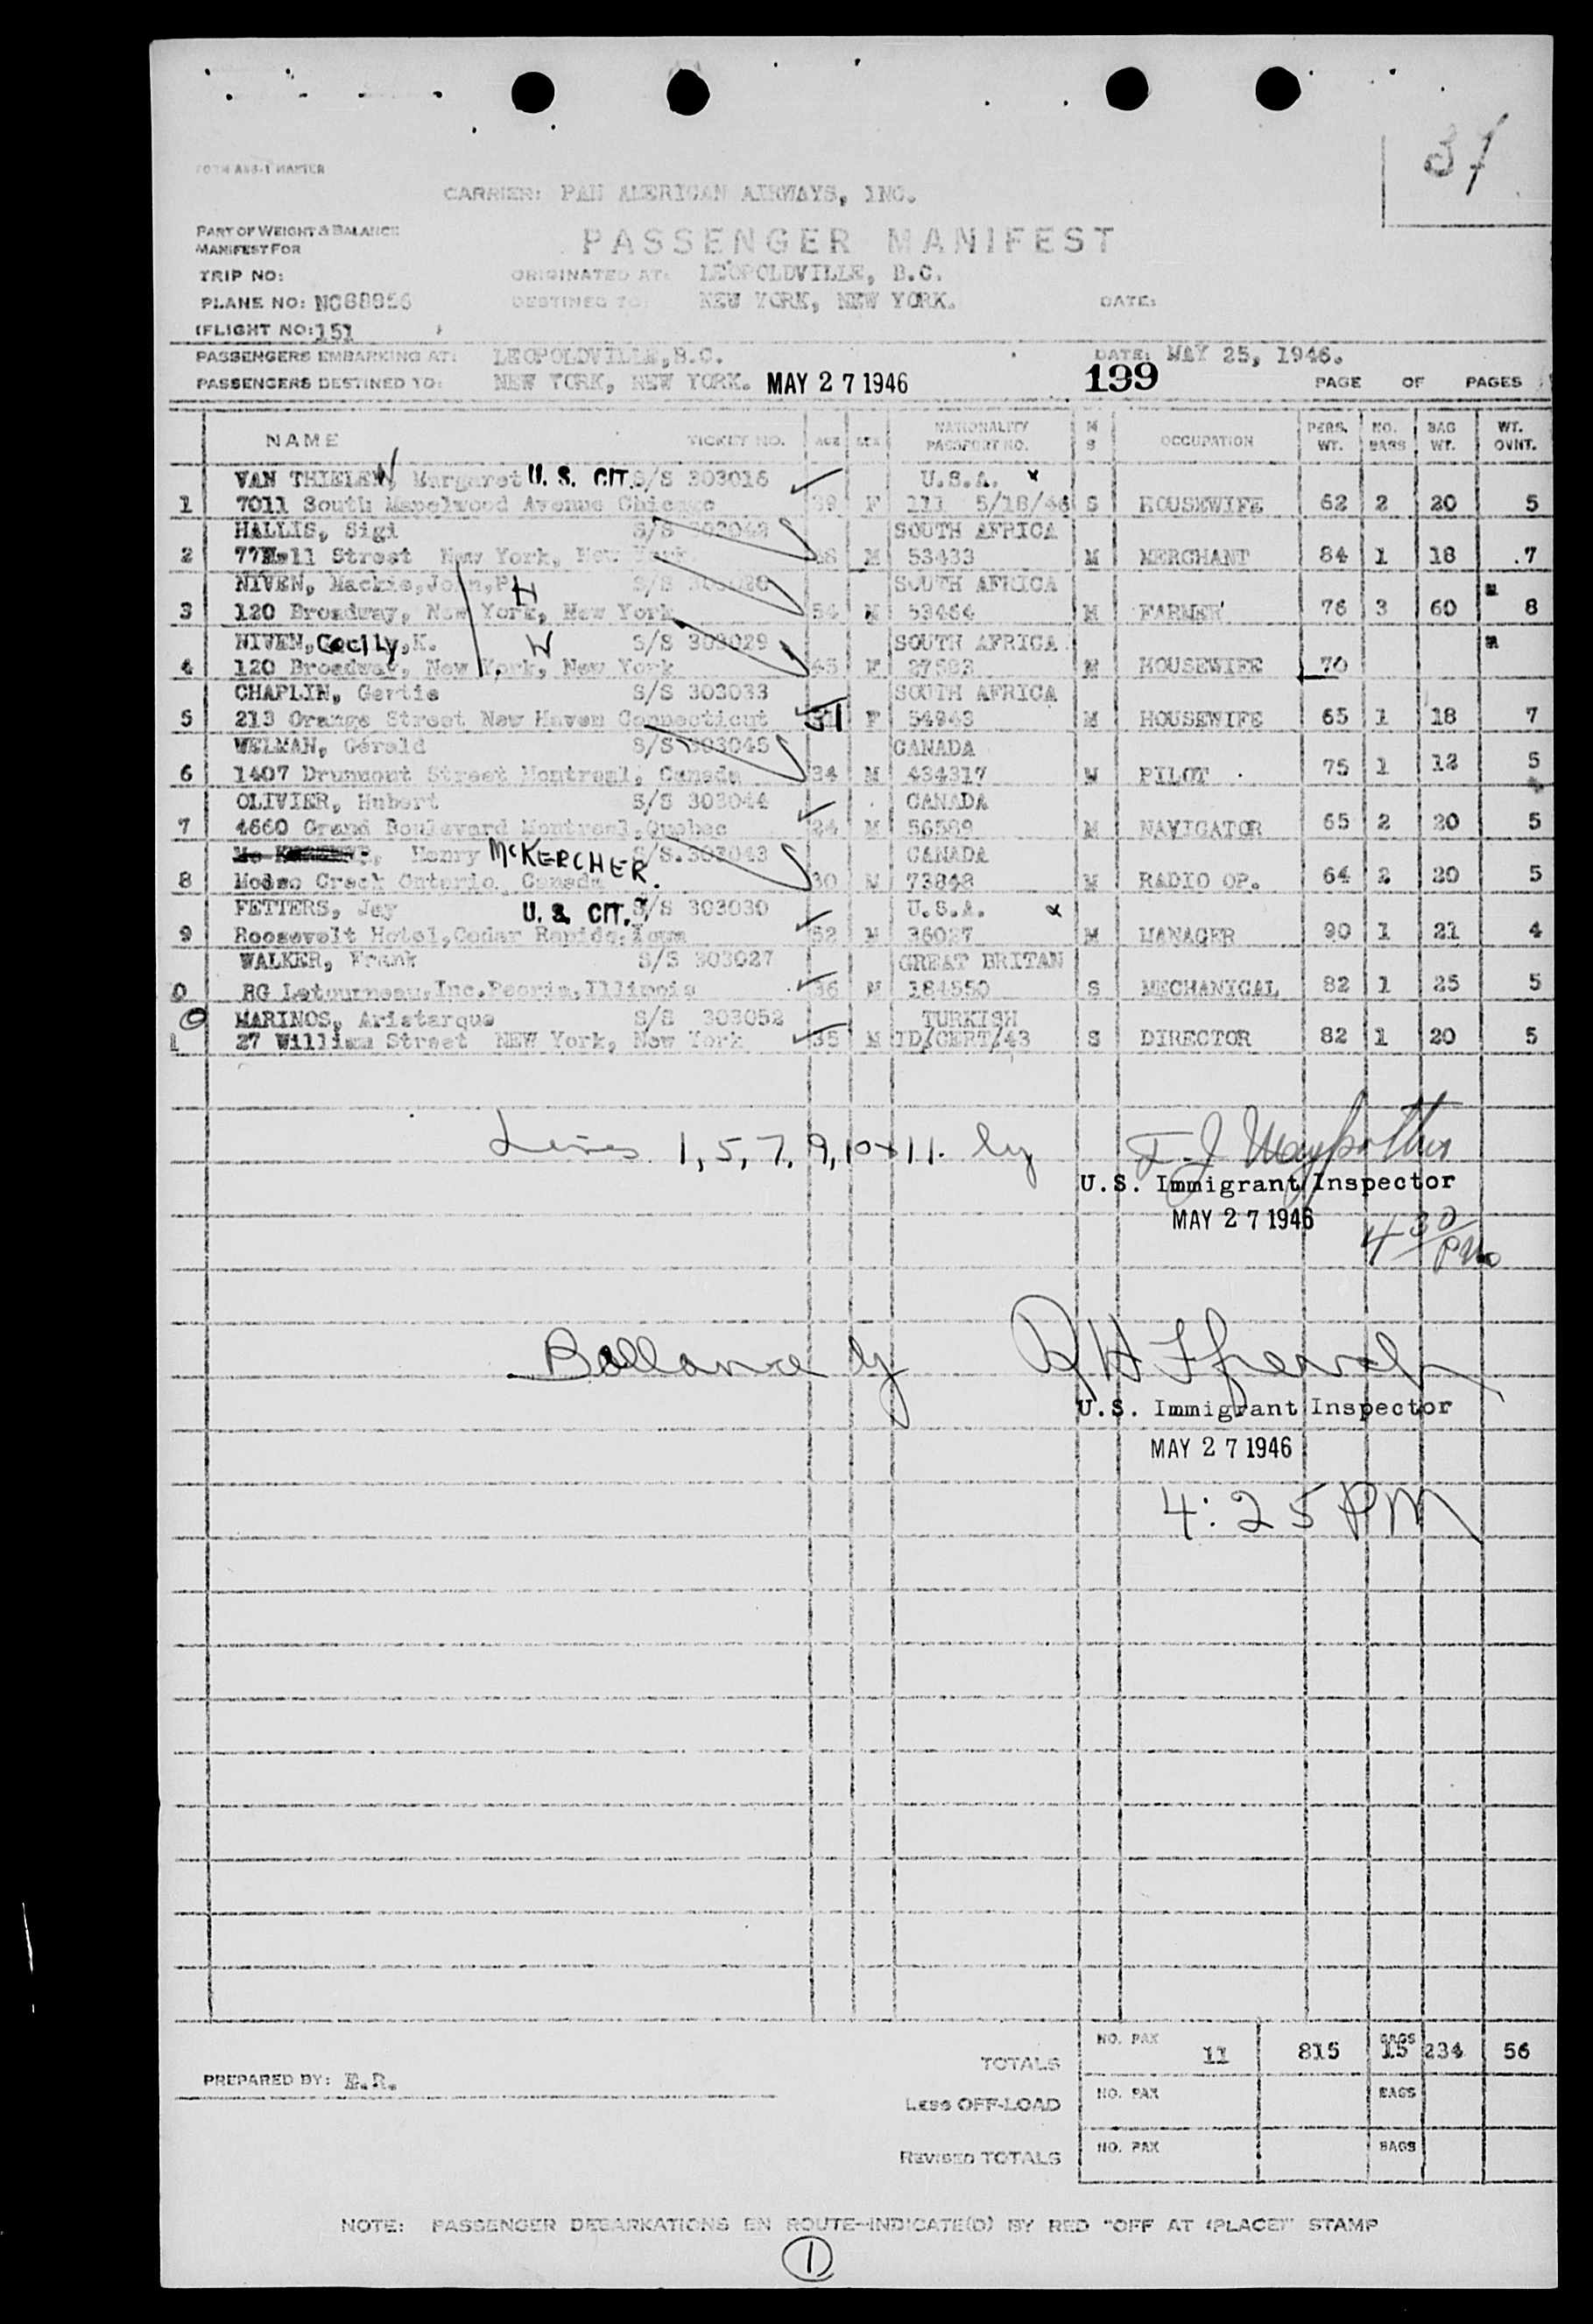 37
CARRIER: PAN AMERICAN AIRWAYS, INC.
PART OF WEIGHT & BALANCE
MANIFEST FOR
PASSENGER MANIFEST
TRIP NO:
ORIGINATED AT: LEOPOLDVILLE, B.C.
PLANE NO: NC88956
DESTINED TO: NEW YORK, NEW YORK. DATE:
(FLIGHT NO: 151 )
PASSENGERS EMBARKING AT: LEOPOLDVILLE, B.C. DATE: MAY 25, 1946.
PASSENGERS DESTINED TO: NEW YORK, NEW YORK. MAY 27 1946 199 PAGE OF PAGES
NAME TICKET NO. AGE SEX NATIONALITY PASSPORT NO. M S OCCUPATION PERS. WT. NO. BAGS BAG WT. WT. OVNT.
VAN THIELEN, Margaret U. S. CIT. S/S 303016 U.S.A. x
1 7011 South Mapelwood Avenue Chicago 39 F 111 5/18/46 S HOUSEWIFE 62 2 20 5
HALLIS, Sigi S/S 303042 SOUTH AFRICA
2 77 Wall Street New York, New York 38 M 53433 M MERCHANT 84 1 18 .7
NIVEN, Mackie, John, P. H S/S 303028 SOUTH AFRICA
3 120 Broadway, New York, New York 54 M 53464 M FARMER 76 3 60 8
NIVEN, Cecily, K. W S/S 303029 SOUTH AFRICA
4 120 Broadway, New York, New York 45 F 27593 M HOUSEWIFE 70
CHAPLIN, Gertie S/S 303033 SOUTH AFRICA
5 213 Orange Street New Haven Connecticut 31 F 54943 M HOUSEWIFE 65 1 18 7
WELMAN, Gerald S/S 303045 CANADA
6 1407 Drummont Street Montreal, Canada 34 M 434317 M PILOT 75 1 12 5
OLIVIER, Hubert S/S 303044 CANADA
7 4660 Grand Boulevard Montreal, Quebec 24 M 56589 M NAVIGATOR 65 2 20 5
Henry McKERCHER. S/S. 303043 CANADA
8 Creek Ontario, Canada 30 M 73848 M RADIO OP. 64 2 20 5
FETTERS, Jay U. S. CIT. S/S 303030 U.S.A. x
9 Roosevelt Hotel, Cedar Rapids, Iowa 52 M 36027 M MANAGER 90 1 21 4
WALKER, Frank S/S 303027 GREAT BRITAN
0 RG Letourneau, Inc. Peoria, Illinois 36 M 184550 S MECHANICAL 82 1 25 5
MARINOS, Aristarque S/S 303052 TURKISH
1 27 William Street NEW York, New York 35 M TD/CERT/43 S DIRECTOR 82 1 20 5
Lines 1, 5, 7, 9, 10 + 11. by
U.S. Immigrant Inspector
MAY 27 1946 4 30 PM
Ballance by
U.S. Immigrant Inspector
MAY 27 1946
4:25 PM
TOTALS NO. PAX 11 815 BAGS 15 234 56
PREPARED BY: E.R.
LESS OFF-LOAD NO. PAX BAGS
REVISED TOTALS NO. PAX BAGS
NOTE: PASSENGER DEBARKATIONS EN ROUTE—INDICATE(D) BY RED "OFF AT (PLACE)" STAMP
1